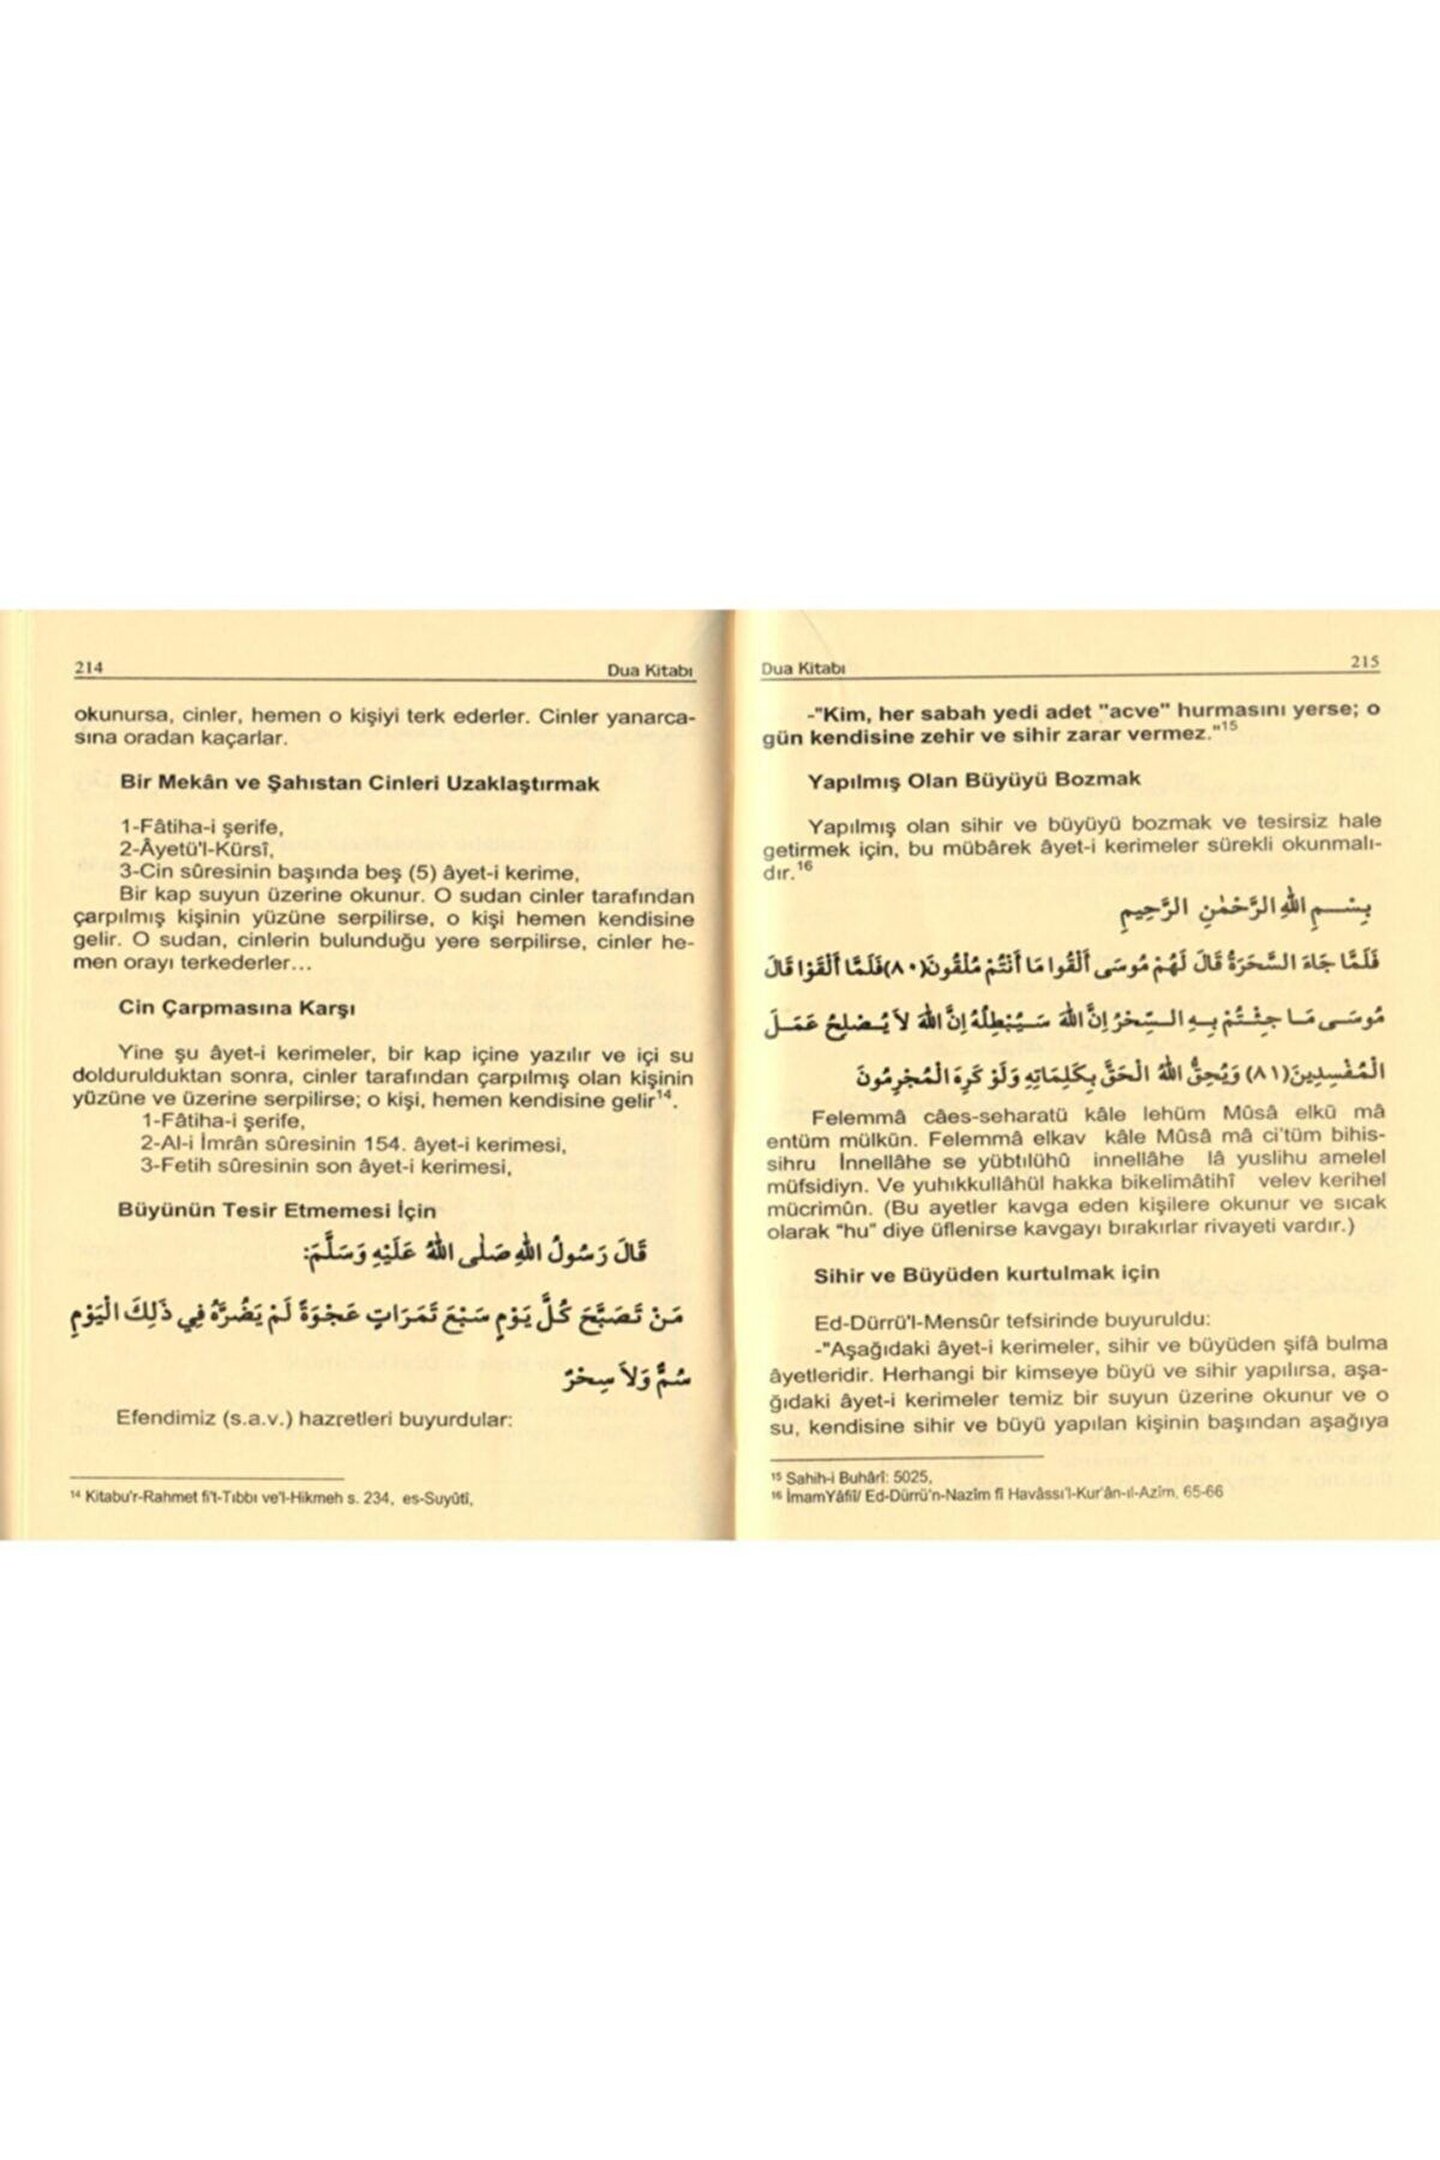 214 Dua Kitabı
okunursa, cinler, hemen o kişiyi terk ederler. Cinler yanarca-
sına oradan kaçarlar.
Bir Mekân ve Şahıstan Cinleri Uzaklaştırmak
1-Fâtiha-i şerife,
2-Âyetü'l-Kürsî,
3-Cin sûresinin başında beş (5) âyet-i kerime,
Bir kap suyun üzerine okunur. O sudan cinler tarafından
çarpılmış kişinin yüzüne serpilirse, o kişi hemen kendisine
gelir. O sudan, cinlerin bulunduğu yere serpilirse, cinler he-
men orayı terkederler...
Cin Çarpmasına Karşı
Yine şu âyet-i kerimeler, bir kap içine yazılır ve içi su
doldurulduktan sonra, cinler tarafından çarpılmış olan kişinin
yüzüne ve üzerine serpilirse; o kişi, hemen kendisine gelir¹⁴.
1-Fâtiha-i şerife,
2-Al-i İmrân sûresinin 154. âyet-i kerimesi,
3-Fetih sûresinin son âyet-i kerimesi,
Büyünün Tesir Etmemesi İçin
قَالَ رَسُولُ اللهِ صَلَّى اللهُ عَلَيْهِ وَسَلَّمَ:
مَنْ تَصَبَّحَ كُلَّ يَوْمٍ سَبْعَ تَمَرَاتٍ عَجْوَةً لَمْ يَضُرَّهُ فِي ذَلِكَ الْيَوْمِ
سُمٌّ وَلاَ سِحْرٌ
Efendimiz (s.a.v.) hazretleri buyurdular:
¹⁴ Kitabu'r-Rahmet fi't-Tıbbı ve'l-Hikmeh s. 234, es-Suyûtî,
Dua Kitabı 215
-"Kim, her sabah yedi adet "acve" hurmasını yerse; o
gün kendisine zehir ve sihir zarar vermez."¹⁵
Yapılmış Olan Büyüyü Bozmak
Yapılmış olan sihir ve büyüyü bozmak ve tesirsiz hale
getirmek için, bu mübârek âyet-i kerimeler sürekli okunmalı-
dır.¹⁶
بِسْمِ اللهِ الرَّحْمٰنِ الرَّحِيمِ
فَلَمَّا جَاءَ السَّحَرَةُ قَالَ لَهُمْ مُوسَى أَلْقُوا مَا أَنْتُمْ مُلْقُونَ(٨٠)فَلَمَّا أَلْقَوْا قَالَ
مُوسَى مَا جِئْتُمْ بِهِ السِّحْرُ إِنَّ اللهَ سَيُبْطِلُهُ إِنَّ اللهَ لاَ يُصْلِحُ عَمَلَ
الْمُفْسِدِينَ(٨١) وَيُحِقُّ اللهُ الْحَقَّ بِكَلِمَاتِهِ وَلَوْ كَرِهَ الْمُجْرِمُونَ
Felemmâ câes-seharatü kâle lehüm Mûsâ elkû mâ
entüm mülkûn. Felemmâ elkav kâle Mûsâ mâ ci'tüm bihis-
sihru İnnellâhe se yübtılühû innellâhe lâ yuslihu amelel
müfsidiyn. Ve yuhıkkullâhül hakka bikelimâtihî velev kerihel
mücrimûn. (Bu ayetler kavga eden kişilere okunur ve sıcak
olarak "hu" diye üflenirse kavgayı bırakırlar rivayeti vardır.)
Sihir ve Büyüden kurtulmak için
Ed-Dürrü'l-Mensûr tefsirinde buyuruldu:
-"Aşağıdaki âyet-i kerimeler, sihir ve büyüden şifâ bulma
âyetleridir. Herhangi bir kimseye büyü ve sihir yapılırsa, aşa-
ğıdaki âyet-i kerimeler temiz bir suyun üzerine okunur ve o
su, kendisine sihir ve büyü yapılan kişinin başından aşağıya
¹⁵ Sahih-i Buhârî: 5025,
¹⁶ İmamYâfiî/ Ed-Dürrü'n-Nazîm fî Havâssı'l-Kur'ân-ıl-Azîm, 65-66